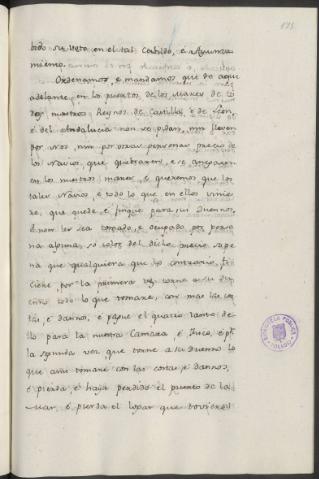 125
bido su voto en el tal Cabildo, e Ayunta
miento.
Ordenamos, e mandamos que de aqui
adelante, en los puertos, de los Mares de to
dos nuestros Reynos de Castilla, e de Leon,
e del Andalucia non se pidan, nin lleven
por Nos, nin por otras personas precio de
los Navios, que quebraren, e se anegaren
en los nuestros mares, e queremos que los
tales Navios, e todo lo que en ellos vinie
re, que quede e finque para sus Dueños,
e non les sea tomado, e ocupado por perso
na alguna, so color del dicho precio so pe
na que qualquiera que lo contrario fi
ciere, por la primera vez torne a su du
eño todo lo que tomare, con mas las cos
tas, e daños, e pague el quatro tanto de
llo para la nuestra Camara, e Fisco, e por
la segunda vez que torne a su Dueño lo
que assi tomare con las costas, e daños,
e pierda, e haya perdido el puerto de la
Mar, e pierda el lugar que toviere
BIBLIOTECA PUBLICA
TOLEDO